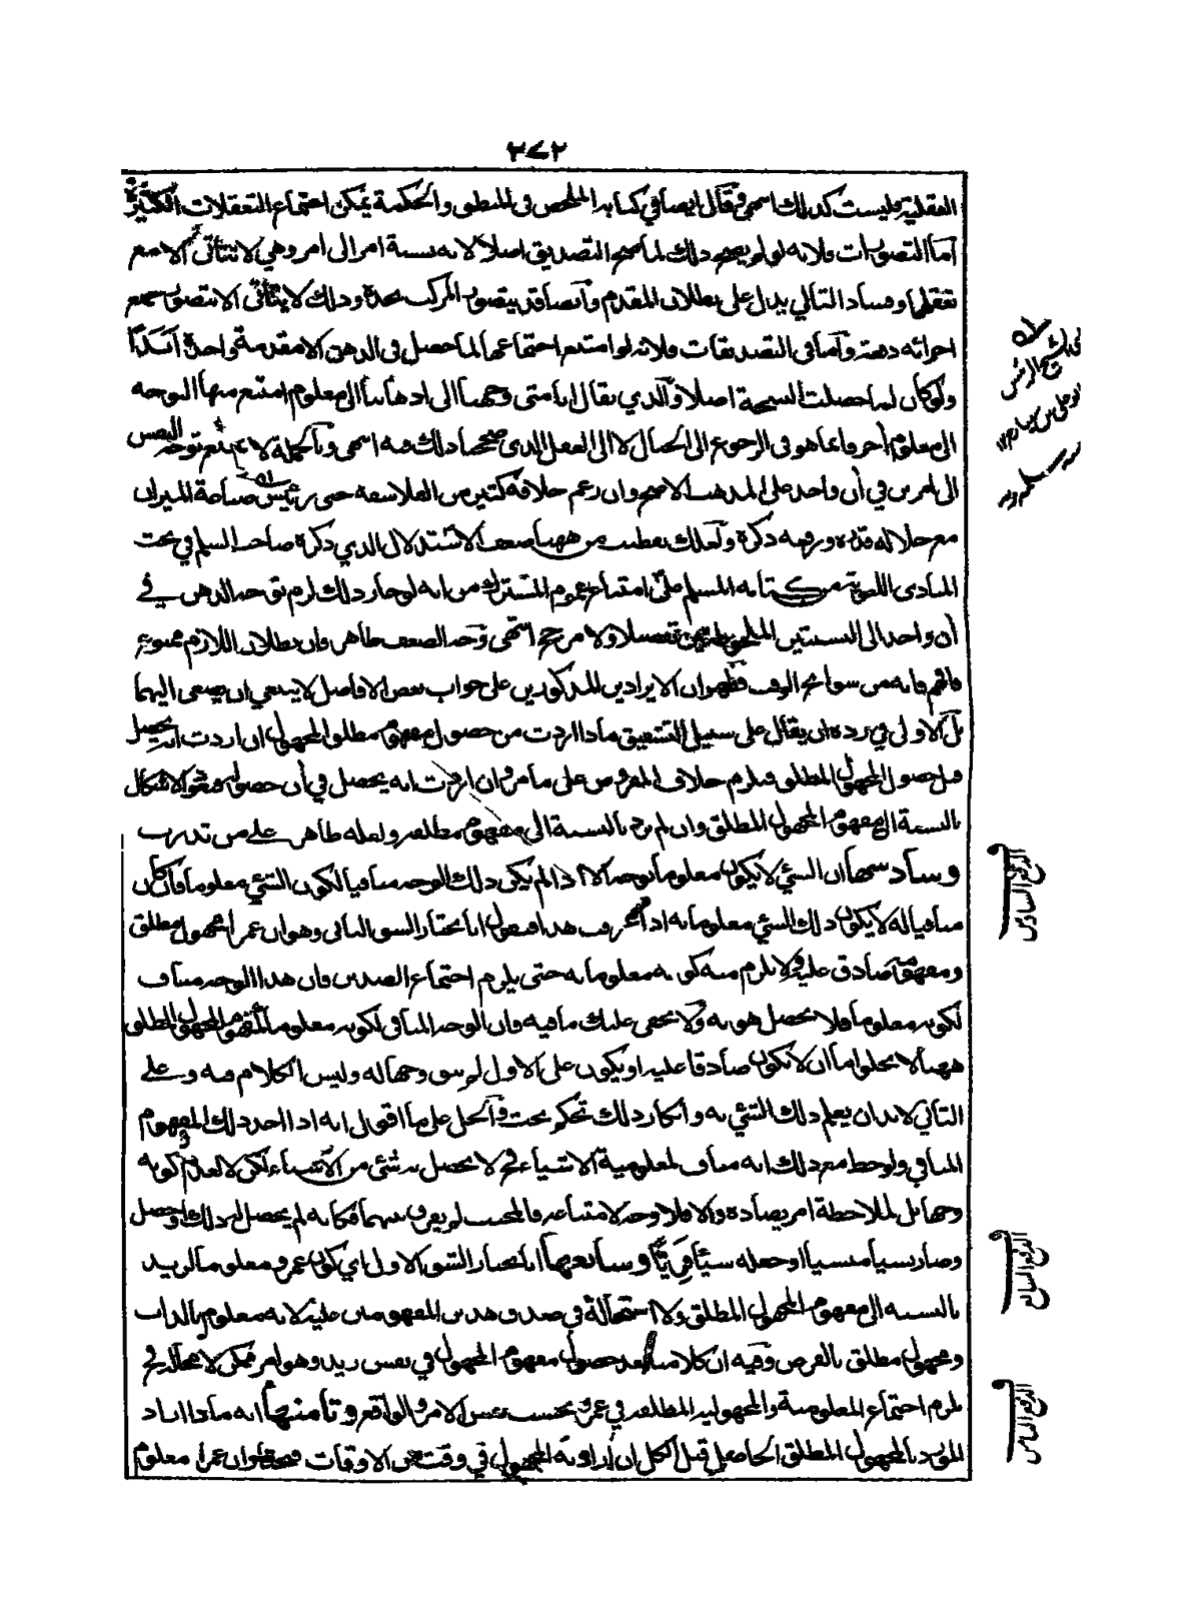 ٣٧٢
العقلية فليست كذلك انتهى وقال ايضا في كتابه الملخص فى المنطق والحكمة يمكن اجتماع التعقلات الكثيرة
اما التصورات فلانه لو لم يصح ذلك لما صح التصديق اصلا لانه نسبة امر الى امر وهي لا تتأتى الا مع
تعقلهما وفساد التالي يدل على بطلان المقدم وايضا قد يتصور المركب بحده وذلك لا يتأتى الا بتصور جميع
اجزائه دفعة واما فى التصديقات فلانه لو امتنع اجتماعها لما حصل فى الذهن الا مقدمة واحدة ابدا
ولو كان لما حصلت النتيجة اصلا والذي يقال انا متى وجهنا اذهاننا الى معلوم امتنع منها التوجه
الى معلوم اخر فانما هو فى الرجوع الى الخيال لا الى العقل انتهى وبالجملة لا يمتنع توجه النفس
الى امرين في ان واحد على المذهب الاصح وان زعم خلافه كثير من الفلاسفة حتى رئيس صناعة الميزان
مع جلالة قدره ورفعة ذكره ولعلك تفطنت من ههنا ضعف الاستدلال الذي ذكره صاحب السلم في بحث
المبادى اللغوية من كتابه المسلم على امتناع عموم المشترك من انه لو جاز ذلك لزم توجه الذهن في
ان واحد الى النسبتين الملحوظتين تفصيلا ولا مرجح انتهى وجه الضعف ظاهر فان بطلان اللازم ممنوع
فافهم فانه من سوانح الوقت فظهر ان الايرادين المذكورين على جواب بعض الافاضل لا ينبغي ان يصغى اليهما
بل الاولى في رده ان يقال على سبيل التشقيق ماذا اردت من حصول مفهوم مطلق المجهول ان اردت انه يحصل
قبل حصول المجهول المطلق فيلزم خلاف المفروض على ما مر وان اردت انه يحصل في ان حصوله فيعود الاشكال
بالنسبة الى مفهوم المجهول المطلق وان لم يرد بالنسبة الى مفهوم مطلقه ولعله ظاهر على من تدرب
وسادسها ان الشئ لا يكون معلوما بوجه الا اذا لم يكن ذلك الوجه منافيا لكون الشئ معلوما فان كان
منافيا له لا يكون ذلك الشئ معلوما به اذا عرفت هذا فنقول انا نختار الشق الثانى وهو ان عمرا مجهول مطلق
ومفهومه صادق عليه ولا يلزم منه كونه معلوما به حتى يلزم اجتماع الضدين فان هذا الوجه مناف
لكونه معلوما فلا يحصل هو به ولا يخفى عليك ما فيه فان الوجه المنافى لكونه معلوما اى مفهوم المجهول المطلق
ههنا لا يخلو اما ان لا يكون صادقا عليه او يكون على الاول لم يبق وجها له وليس الكلام فيه وعلى
الثاني لابد ان يعلم ذلك الشئ به وانكار ذلك تحكم بحت والحل على ما اقول انه اذا اخذ ذلك المفهوم
المنافي ولوحظ مع ذلك انه مناف لمعلومية الاشياء فح لا يحصل به شئ من الاشياء لكن لا لعدم كونه
وجها بل لملاحظة امر يضاده والا فلا وجه لامتناعه
وصار نسيا منسيا او جعله شيئا فريا وسابعها انا نختار الشق الاول اي كون عمرو معلوما لزيد
بالنسبة الى مفهوم المجهول المطلق ولا استحالة في صدق هذين المفهومين عليه لانه معلوم بالذات
ومجهول مطلق بالفرض وفيه ان كلامنا بعد حصول مفهوم المجهول في نفس زيد وهو امر ممكن لا محالة فح
يلزم اجتماع المعلومية والمجهولية المطلقة في عمرو بحسب نفس الامر والواقع وثامنها انه ماذا اراد
المورد بالمجهول المطلق الحاصل قبل الكل ان اراد به المجهول في وقت من الاوقات فمختار ان عمرا معلوم
الشيخ الرئيس
ابو علي بن سينا
الدفع السادس
الدفع السابع
الدفع الثامن